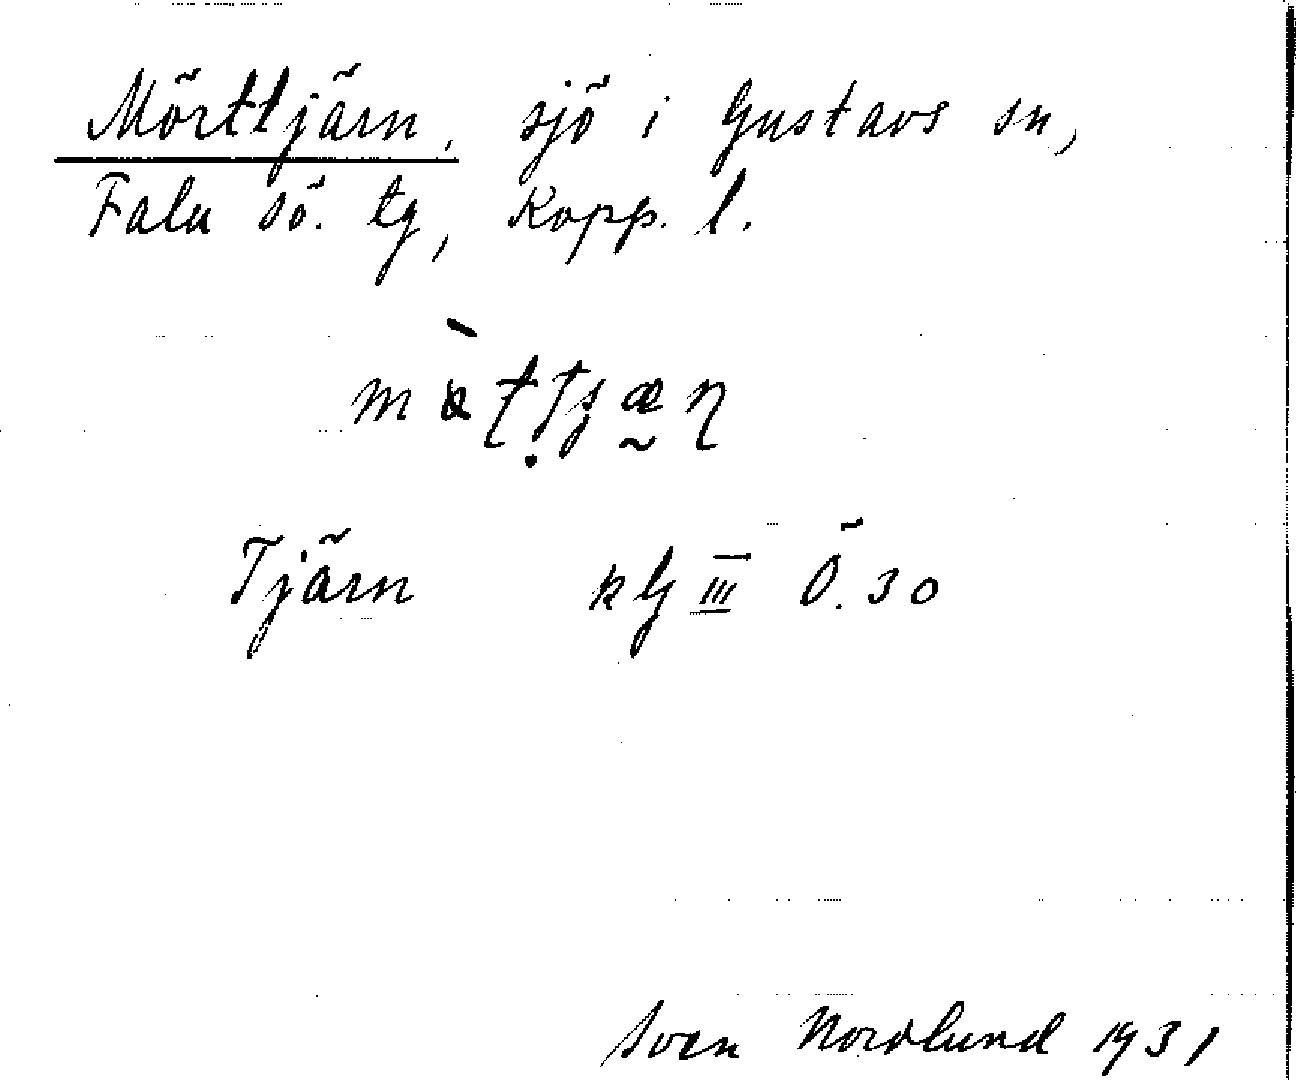 Mörttjärn, sjö i Gustavs sn,
Falu sö. tg, Kopp. l.
Tjärn kbl III Ö. 30
Sven Nordlund 1931